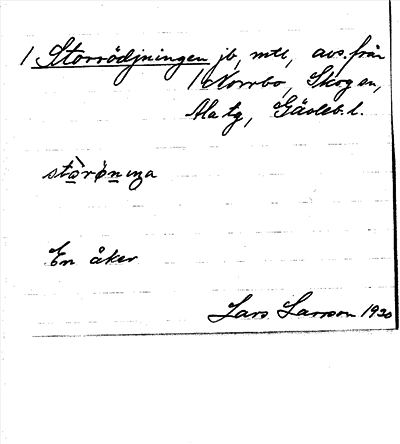 1 Storrödjningen jb, mtl, avs. från
1 Norrbo, Skogen,
Ala tg, Gävleb. l.
stàrønıŋa
En åker
Lars Larsson 1930